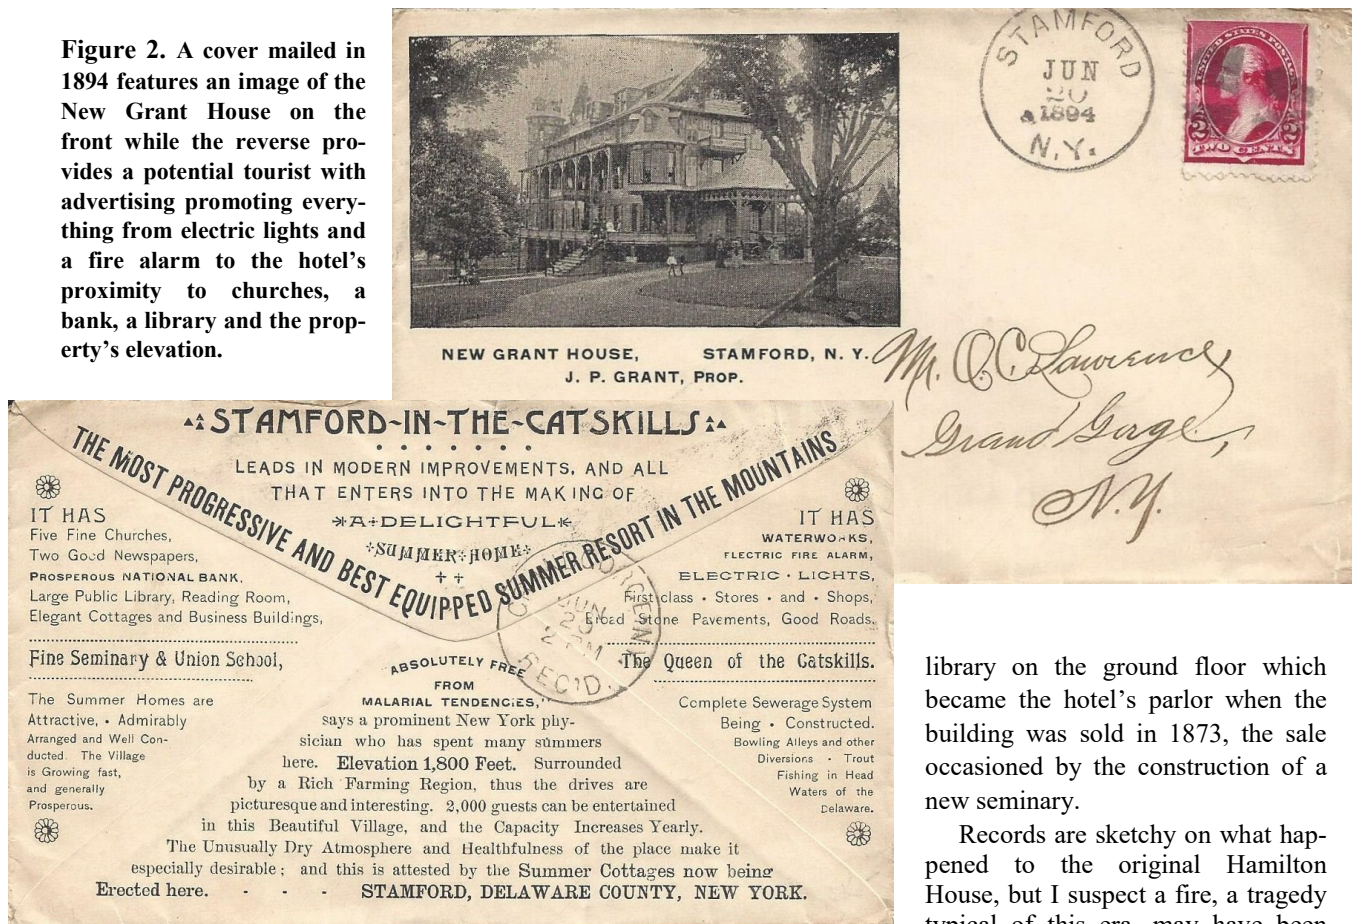 Figure 2. A cover mailed in
1894 features an image of the
New Grant House on the
front while the reverse pro-
vides a potential tourist with
advertising promoting every-
thing from electric lights and
a fire alarm to the hotel's
proximity to churches, a
bank, a library and the prop-
erty's elevation.
STAMFORD
JUN
20
1894
N.Y.
UNITED STATES POSTAGE
2 2
TWO CENTS
NEW GRANT HOUSE, STAMFORD, N. Y.
J. P. GRANT, PROP.
Mr. O. C. Lawrence,
Grand Gorge,
N.Y.
STAMFORD-IN-THE-CATSKILLS
THE MOST PROGRESSIVE AND BEST EQUIPPED SUMMER RESORT IN THE MOUNTAINS
LEADS IN MODERN IMPROVEMENTS, AND ALL
THAT ENTERS INTO THE MAKING OF
A DELIGHTFUL
SUMMER HOME
IT HAS
Five Fine Churches,
Two Good Newspapers,
PROSPEROUS NATIONAL BANK,
Large Public Library, Reading Room,
Elegant Cottages and Business Buildings,
Fine Seminary & Union School,
The Summer Homes are
Attractive, • Admirably
Arranged and Well Con-
ducted. The Village
is Growing fast,
and generally
Prosperous.
IT HAS
WATERWORKS,
ELECTRIC FIRE ALARM,
ELECTRIC • LIGHTS,
First-class • Stores • and • Shops,
Broad Stone Pavements, Good Roads.
The Queen of the Catskills.
Complete Sewerage System
Being • Constructed.
Bowling Alleys and other
Diversions • Trout
Fishing in Head
Waters of the
Delaware.
JUN
REC'D.
ABSOLUTELY FREE
FROM
MALARIAL TENDENCIES,"
says a prominent New York phy-
sician who has spent many summers
here. Elevation 1,800 Feet. Surrounded
by a Rich Farming Region, thus the drives are
picturesque and interesting. 2,000 guests can be entertained
in this Beautiful Village, and the Capacity Increases Yearly.
The Unusually Dry Atmosphere and Healthfulness of the place make it
especially desirable; and this is attested by the Summer Cottages now being
Erected here. - - - STAMFORD, DELAWARE COUNTY, NEW YORK.
library on the ground floor which
became the hotel's parlor when the
building was sold in 1873, the sale
occasioned by the construction of a
new seminary.
Records are sketchy on what hap-
pened to the original Hamilton
House, but I suspect a fire, a tragedy
typical of this era, may have been